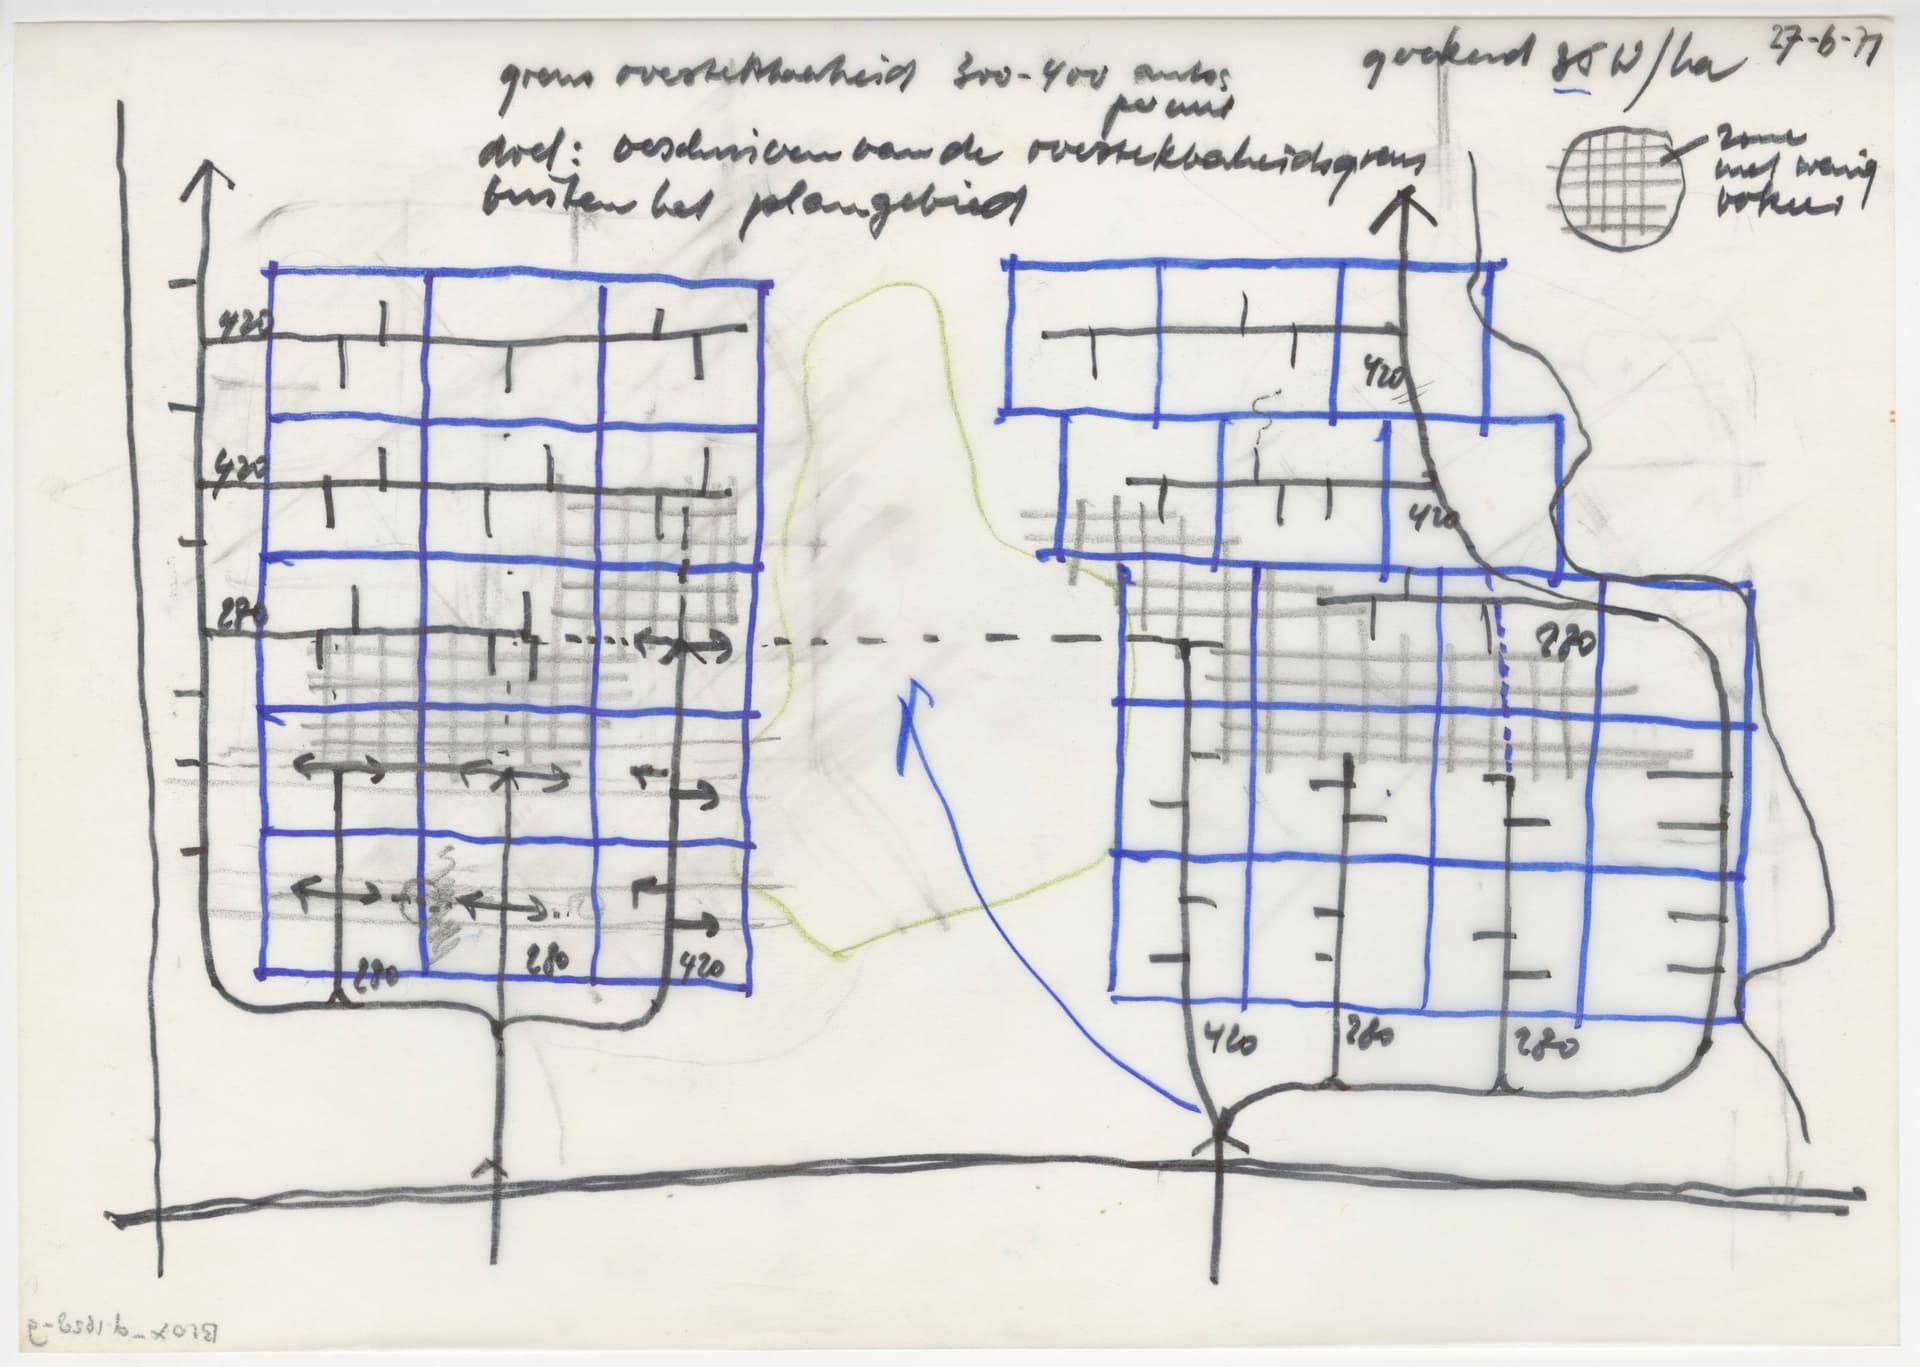 grens oversteekbaarheid 300-400 autos
per uur
gerekend 35 W/ha
27-6-71
doel: verschuiven van de oversteekbaarheidsgrens
buiten het plangebied
zone
met weinig
verkeer
420
420
420
420
270
280
280
280
420
420
280
280